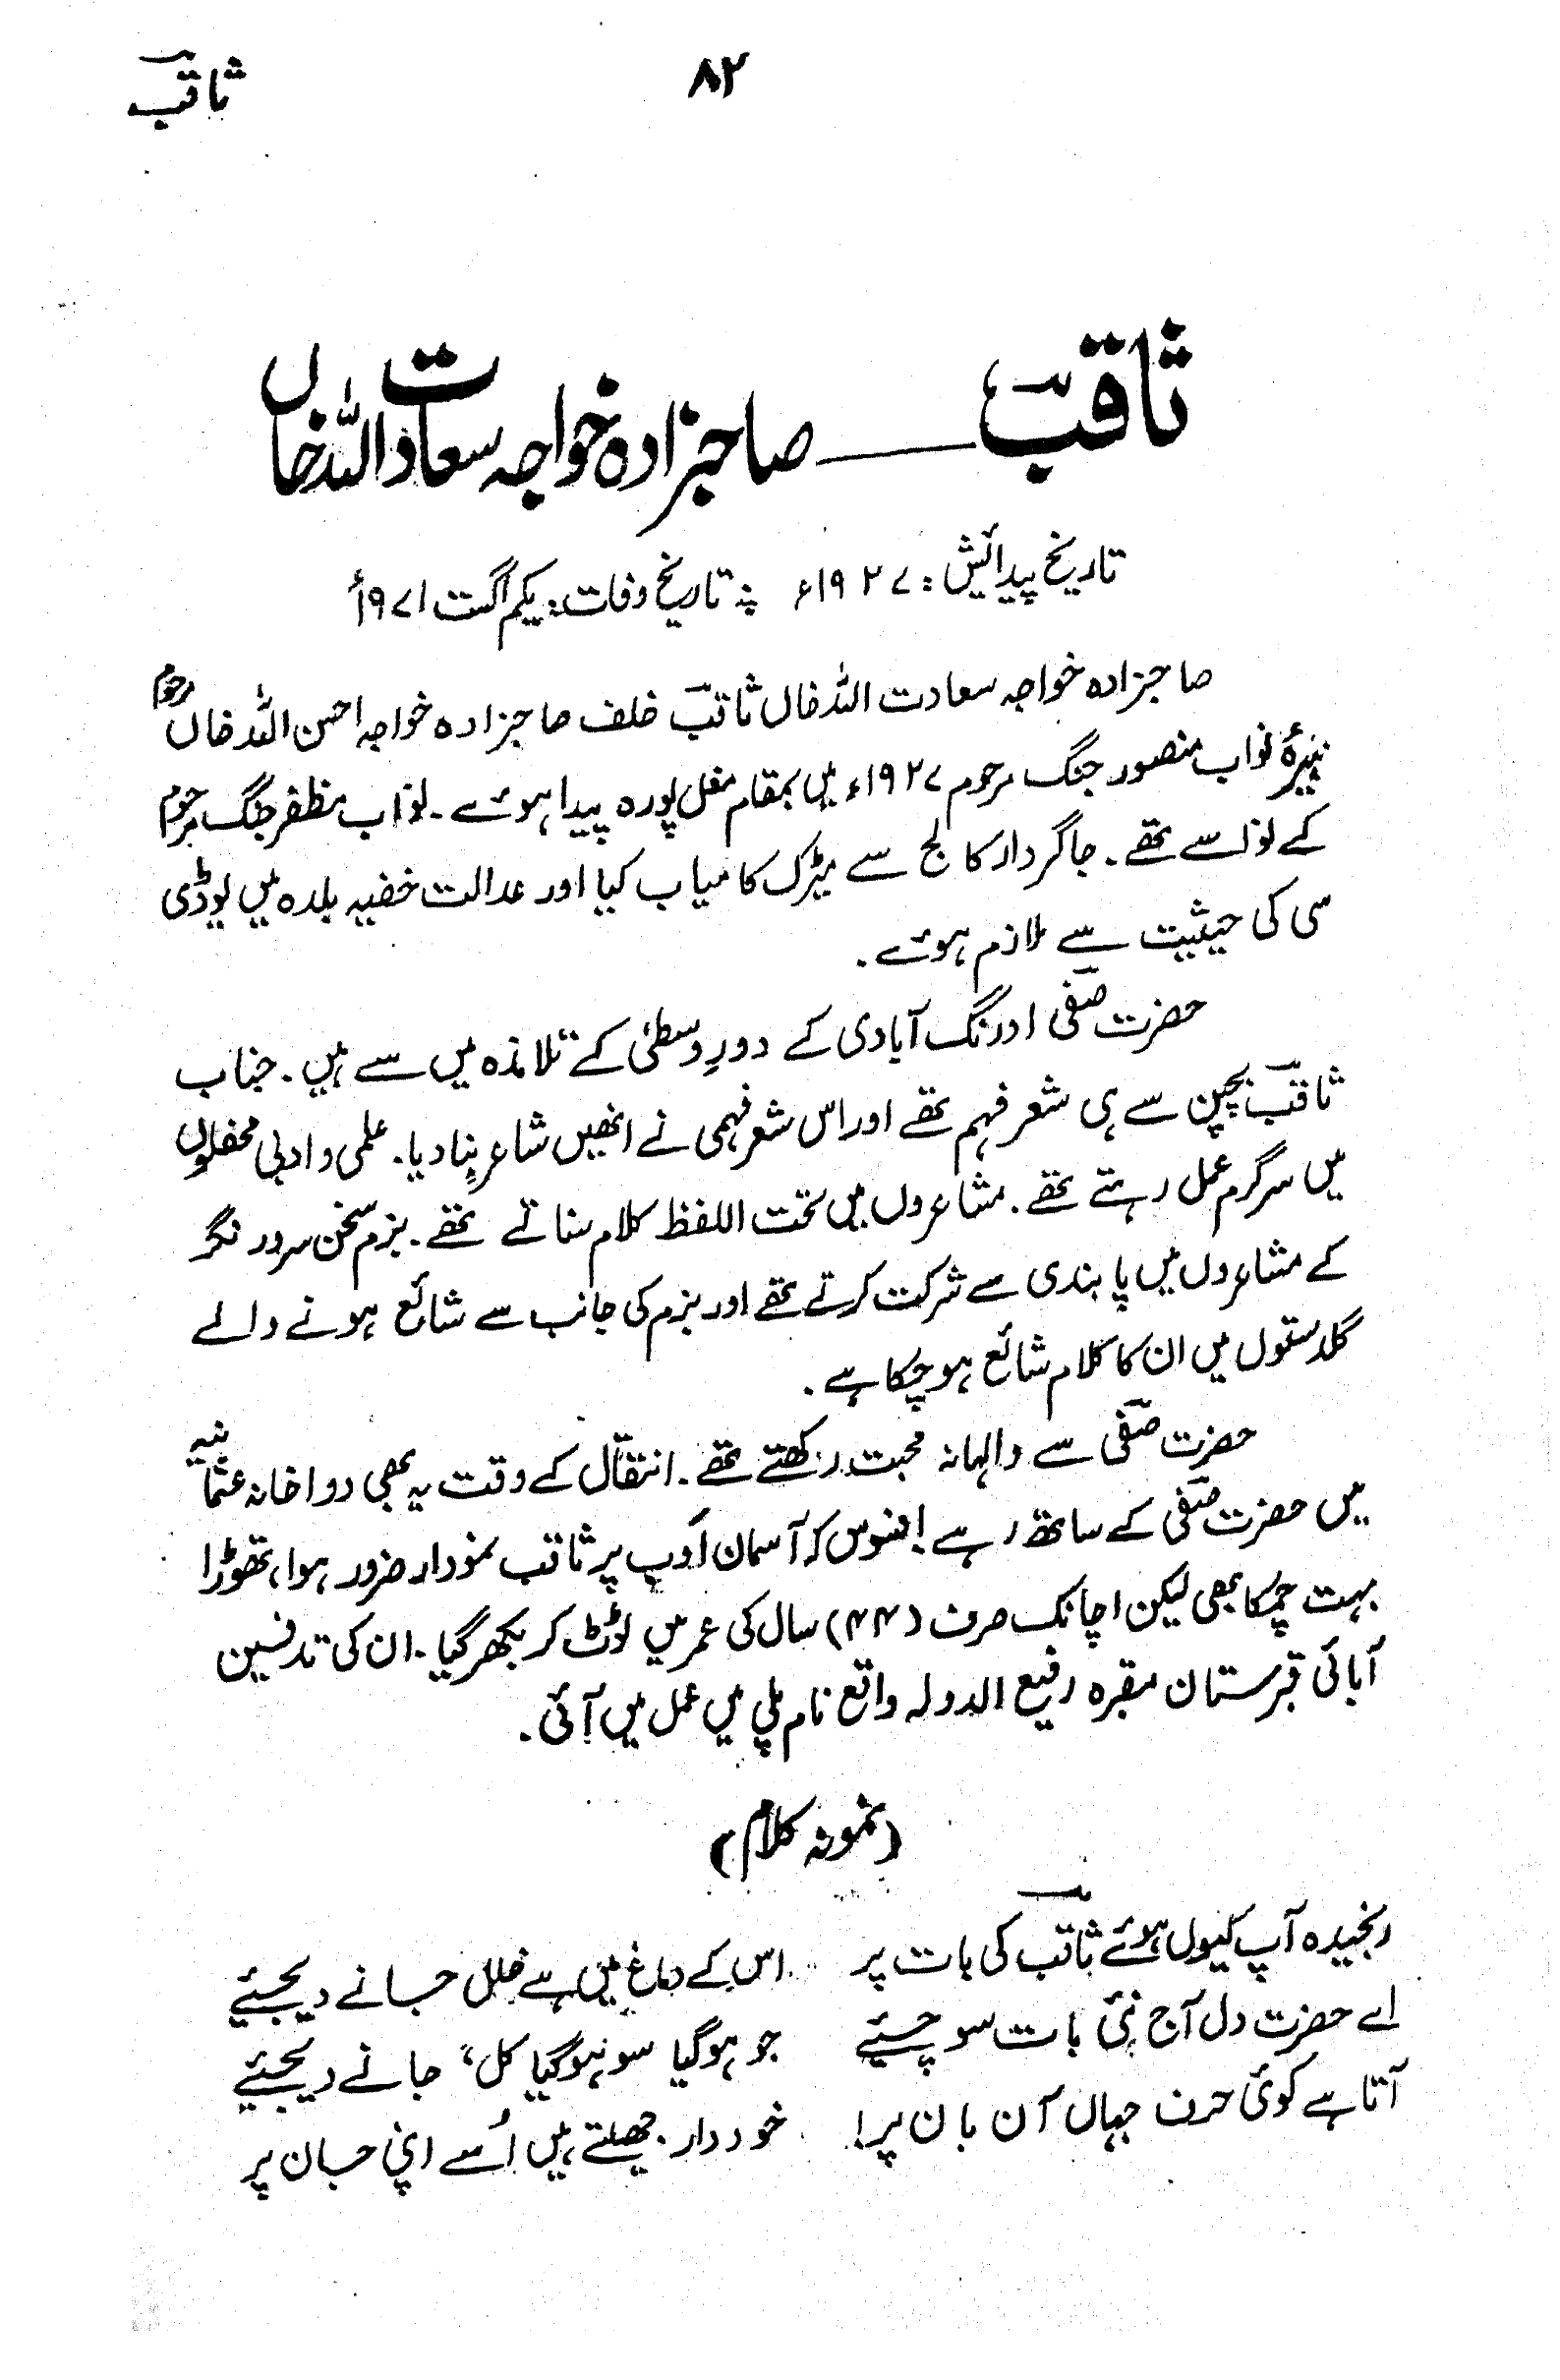 ۸۲
ثاقب
ثاقب — صاحبزادہ خواجہ سعادت اللہ خاں
تاریخ پیدائش: ۱۹۲۷ء ؛ تاریخ وفات: یکم اگست ۱۹۷۱ء
صاحبزادہ خواجہ سعادت اللہ خاں ثاقب خلف صاحبزادہ خواجہ احسن اللہ خاں مرحوم
نبیرۂ نواب منصور جنگ مرحوم ۱۹۲۷ء میں بمقام مغل پورہ پیدا ہوئے۔ نواب مظفر جنگ مرحوم
کے نواسے تھے۔ جاگردار کالج سے میٹرک کامیاب کیا اور عدالت خفیہ بلدہ میں یو ڈی
سی کی حیثیت سے ملازم ہوئے۔
حضرت صفی اورنگ آبادی کے دورِ وسطیٰ کے تلامذہ میں سے ہیں۔ جناب
ثاقب بچپن سے ہی شعر فہم تھے اور اس شعر فہمی نے انھیں شاعر بنا دیا۔ علمی و ادبی محفلوں
میں سرگرم عمل رہتے تھے۔ مشاعروں میں تحت اللفظ کلام سناتے تھے۔ بزم سخن سرور نگر
کے مشاعروں میں پابندی سے شرکت کرتے تھے اور بزم کی جانب سے شائع ہونے والے
گلدستوں میں ان کا کلام شائع ہو چکا ہے۔
حضرت صفی سے والہانہ محبت رکھتے تھے۔ انتقال کے وقت یہ بھی دواخانہ عثمانیہ
میں حضرت صفی کے ساتھ رہے افسوس کہ آسمان ادب پر ثاقب نمودار ضرور ہوا، تھوڑا
بہت چمکا بھی لیکن اچانک صرف (۴۴) سال کی عمر میں ٹوٹ کر بکھر گیا۔ ان کی تدفین
آبائی قبرستان مقبرہ رفیع الدولہ واقع نام پلی میں عمل میں آئی۔
(نمونہ کلام)
رنجیدہ آپ کیوں ہوئے ثاقب کی بات پر اس کے دماغ میں ہے خلل جانے دیجئیے
اے حضرت دل آج نئی بات سوچئیے جو ہو گیا سو ہو گیا کل، جانے دیجئیے
آتا ہے کوئی حرف جہاں آن بان پر! خوددار جھیلتے ہیں اُسے اپنی جان پر